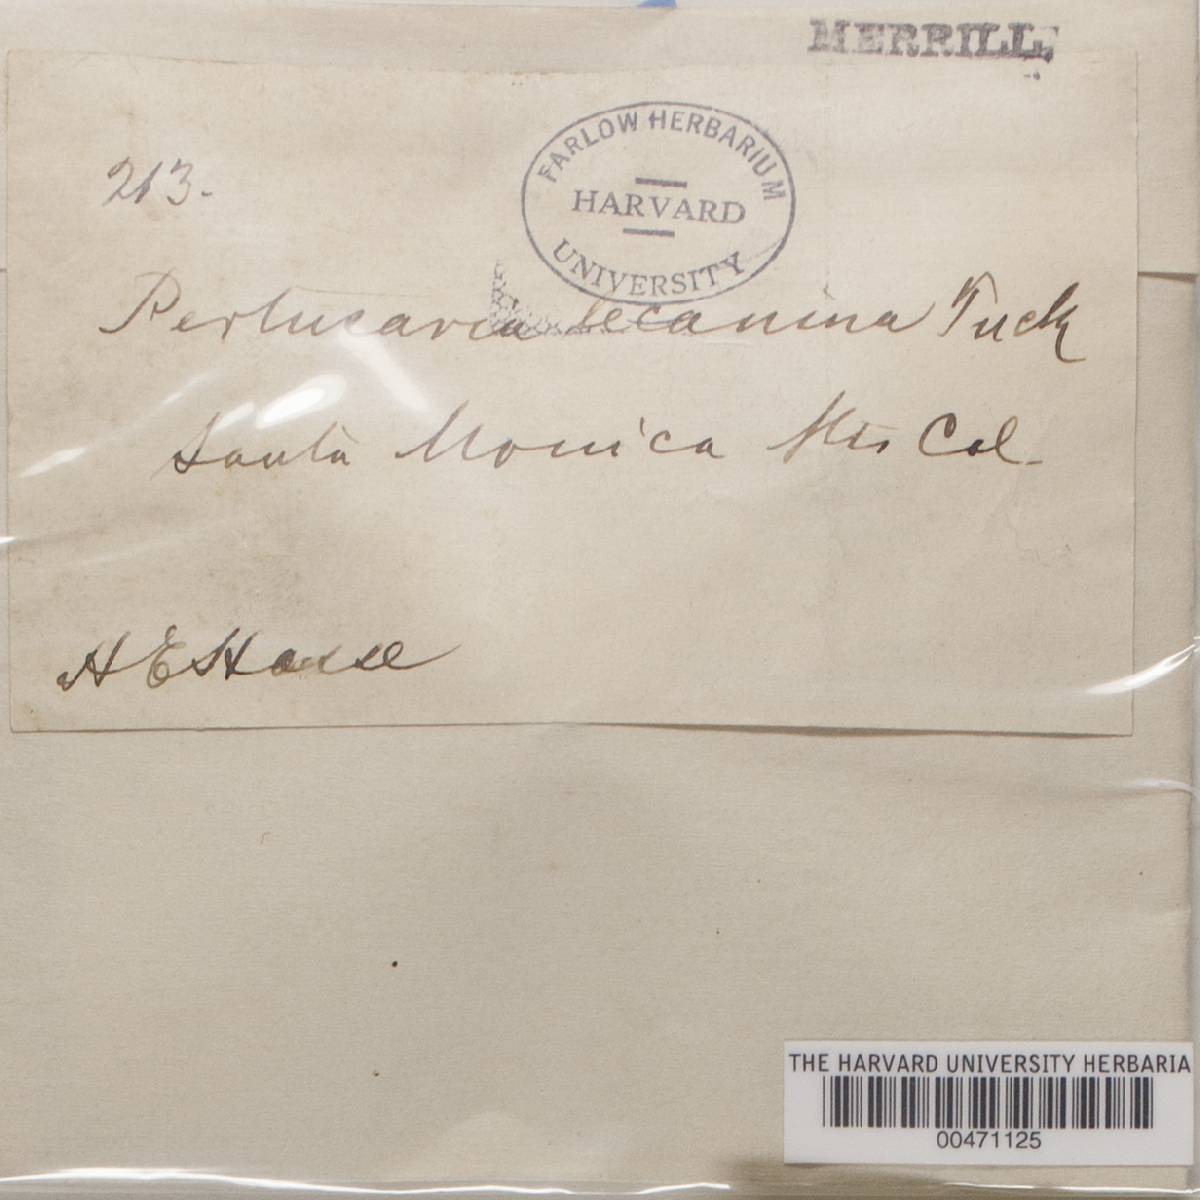 MERRILL
FARLOW HERBARIUM
HARVARD
UNIVERSITY
213.
Pertusaria lecanina Tuck
Santa Monica Mts Cal.
H E Hasse
THE HARVARD UNIVERSITY HERBARIA
00471125